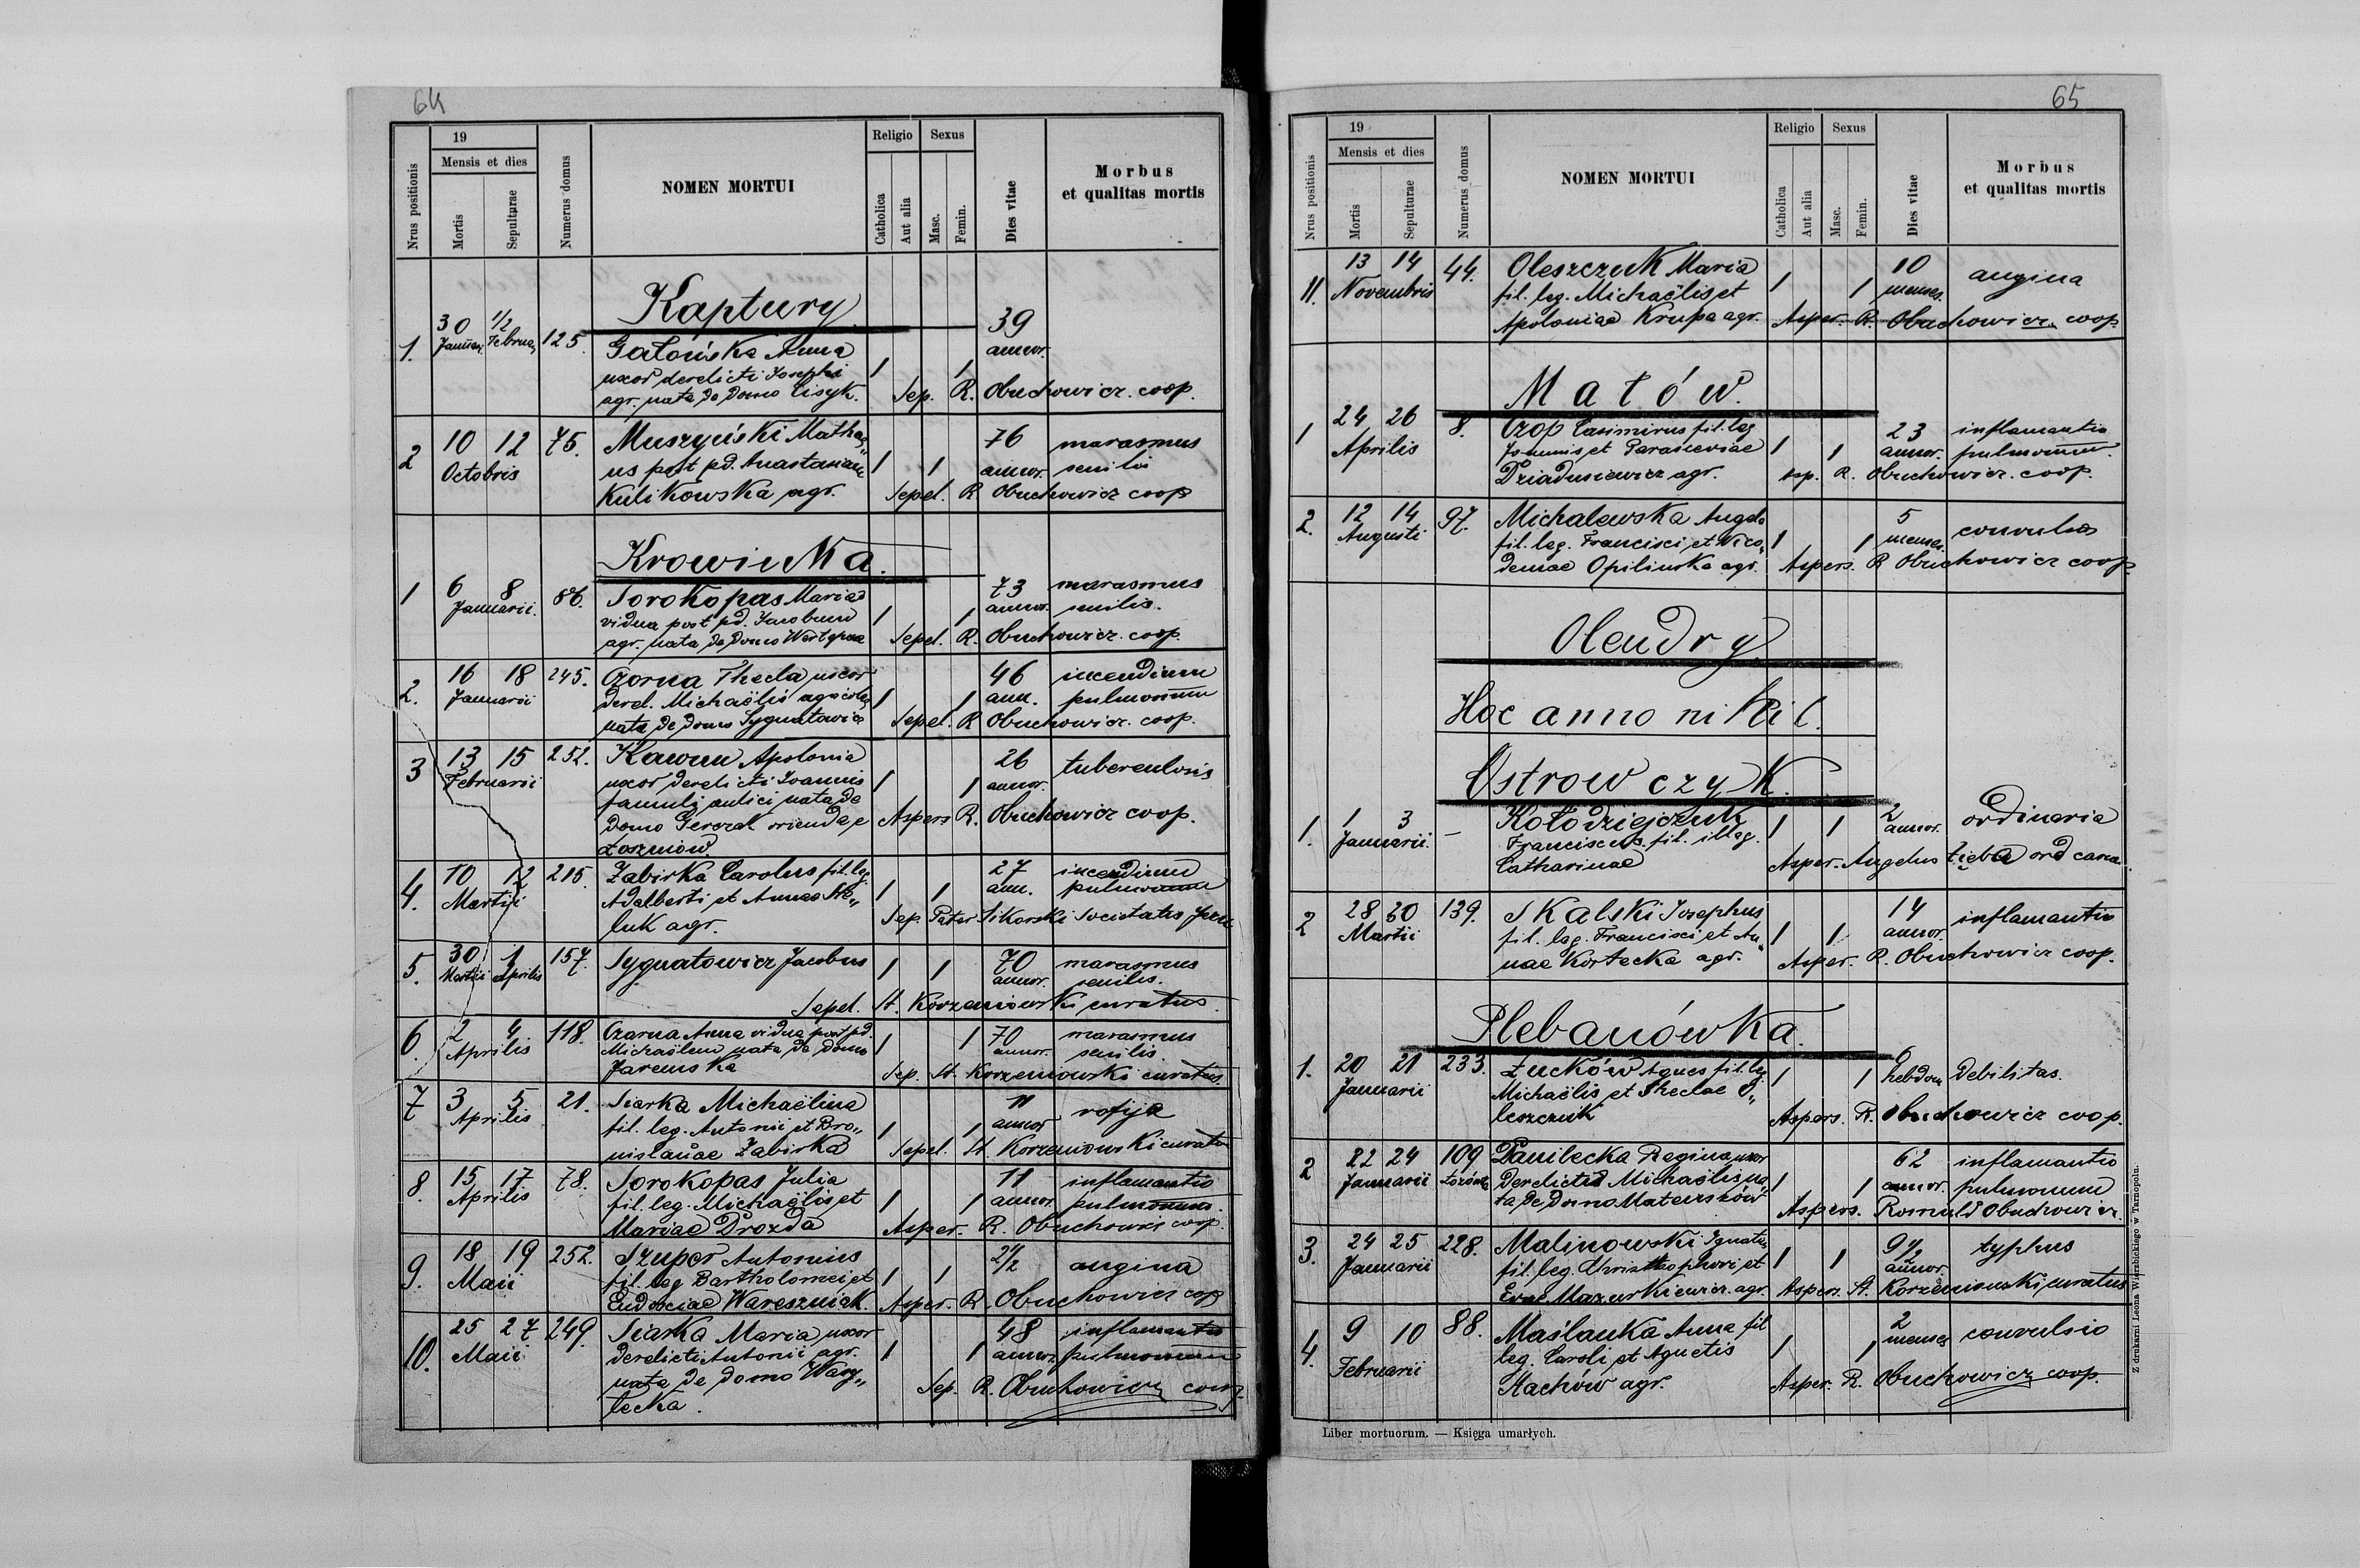 64
Nrus positionis
19
Mensis et dies
Mortis
Sepulturae
Numerus domus
NOMEN MORTUI
Religio
Catholica
Aut alia
Sexus
Masc.
Femin.
Dies vitae
Morbus
et qualitas mortis
Kaptury
1. 30 Januar. 1/2 Februar. 125. Gałońska Anna 1 1 39 annor.
uxor derelicti Josephi
agr. nata de domo Cisyk. Sep. R. Obuchowicz. coop.
2 10 12 75. Muszyński Mathae„ 76 marasmus
Octobris us post pd. Anastasiam 1 1 annor. senilis
Kulikowska agr. Sepel. R. Obuchowicz coop
Krowinka.
1 6 8 86. Sorokopas Maria 73 marasmus
Januarii. vidua post pd. Jacobum 1 1 annor. senilis.
agr. nata de domo Sepel. R. Obuchowicz. coop.
2. 16 18 245. Czorna Thecla uxor 46 incendium
Januarii derel. Michaëlis agricolae 1 1 ann. pulmonum
nata de domo Sygnatowicz Sepel. R Obuchowicz. coop.
3 13 15 252. Kawun Apolonia 26 tuberculosis
Februarii uxor derelicti Joannis 1 1 annor.
famuli aulici nata de
domo oriendae Aspers R. Obuchowicz coop.
Łoszniow.
4. 10 12 215. Zabirka Carolus fil. leg. 27 incendium
Martii Adalberti et Annae 1 1 ann. pulmonum
luk agr. Sep. Pater Sikorski Societatis Jesu
5. 30 1 157. Sygnatowicz Jacobus 1 1 70 marasmus
Martii Aprilis annor. senilis.
Sepel. St. Korzeniowski curatus
6. 2 4 118. Czarna Anna vidua post pd. 1 1 70 marasmus
Aprilis Michaëlem nata de domo annor. senilis.
Jaremska Sep. St. Korzeniowski curatus.
7 3 5 21. Siarka Michaëlina 11 rofija
Aprilis fil. leg. Antonii et Bro„ 1 1 annor
nislauae Zabirka Sepel. St. Korzeniowski curatus
8. 15 17 78. Sorokopas Julia 11 inflamantio
Aprilis fil. leg. Michaëlis et 1 1 annor. pulmonum.
Mariae Drozda Asper. R. Obuchowicz coop.
9. 18 19 252. Szuper Antonius 2 1/2 angina
Maii fil. leg Bartholomei et 1 1
Eudosciae Wareszniak. Asper. R. Obuchowicz cop
10. 25 27 249. Siarka Maria uxor 48 inflamantio
Maii derelicti Antonii agr. 1 1 annor. pulmonum
nata de domo Wasy„ Sep. R. Obuchowicz coop.
lecka.
65
Nrus positionis
19
Mensis et dies
Mortis
Sepulturae
Numerus domus
NOMEN MORTUI
Religio
Catholica
Aut alia
Sexus
Masc.
Femin.
Dies vitae
Morbus
et qualitas mortis
11. 13 14 44. Oleszczuk Maria 10 angina
Novembris fil. leg. Michaëlis et 1 1 menses.
Apoloniae Krupa agr. Asper. R. Obuchowicz. coop.
Małów.
1 24 26 8. Czop Casimirus fil. leg 23 inflamantio
Aprilis Joannis et Parasceviae 1 1 annor. pulmonum.
Dziadusiewicz agr. Asp. R. Obuchowicz. coop.
2. 12 14 97. Michalewska Angela 5 convulsio
Augusti fil. leg. Francisci et Nico„ 1 1 menses.
demae Opilinska agr. Aspers. R Obuchowicz coop.
Olendry
Hoc anno nihil.
Ostrowczyk.
1. 1 3 – Kołodziejczuk 1 1 2 ordinaria
Januarii. Franciscus. fil. illeg. annor.
Catharinae Asper. Angelus Zięba ord
2 28 30 139. Skalski Josephus 14 inflamantio
Martii fil. leg. Francisci et An„ 1 1 annor.
nae Kortecka agr. Asper. R. Obuchowicz coop.
Plebanówka.
1. 20 21 233. Żucków Agnes fil. leg 1 1 6 debilitas.
Januarii Michaëlis et Theclae O„ hebdom
leszczuk Aspers. R. Obuchowicz coop.
2 22 24 109 Danilecka Regina uxor 62 inflamantio
Januarii Łozówka derelicta Michaëlis na„ 1 1 annor. pulmonum
ta de domo Mateuszków Aspers. Romuld Obuchowicz.
3. 24 25 228. Malinowski Ignatius 9 1/2 typhus
Januarii fil. leg. Christophori et 1 1 annor.
Evae Mazurkiewicz. agr. Aspers. St. Korzeniowski curatus
4. 9 10 88. Maślanka Anna fil 2 convulsio
Februarii leg. Caroli et Agnetis 1 1 menses
Stachów agr. Asper. R. Obuchowicz coop.
Liber mortuorum. — Księga umarłych.
Z drukarni Leona Wierzbickiego w Tarnopolu.